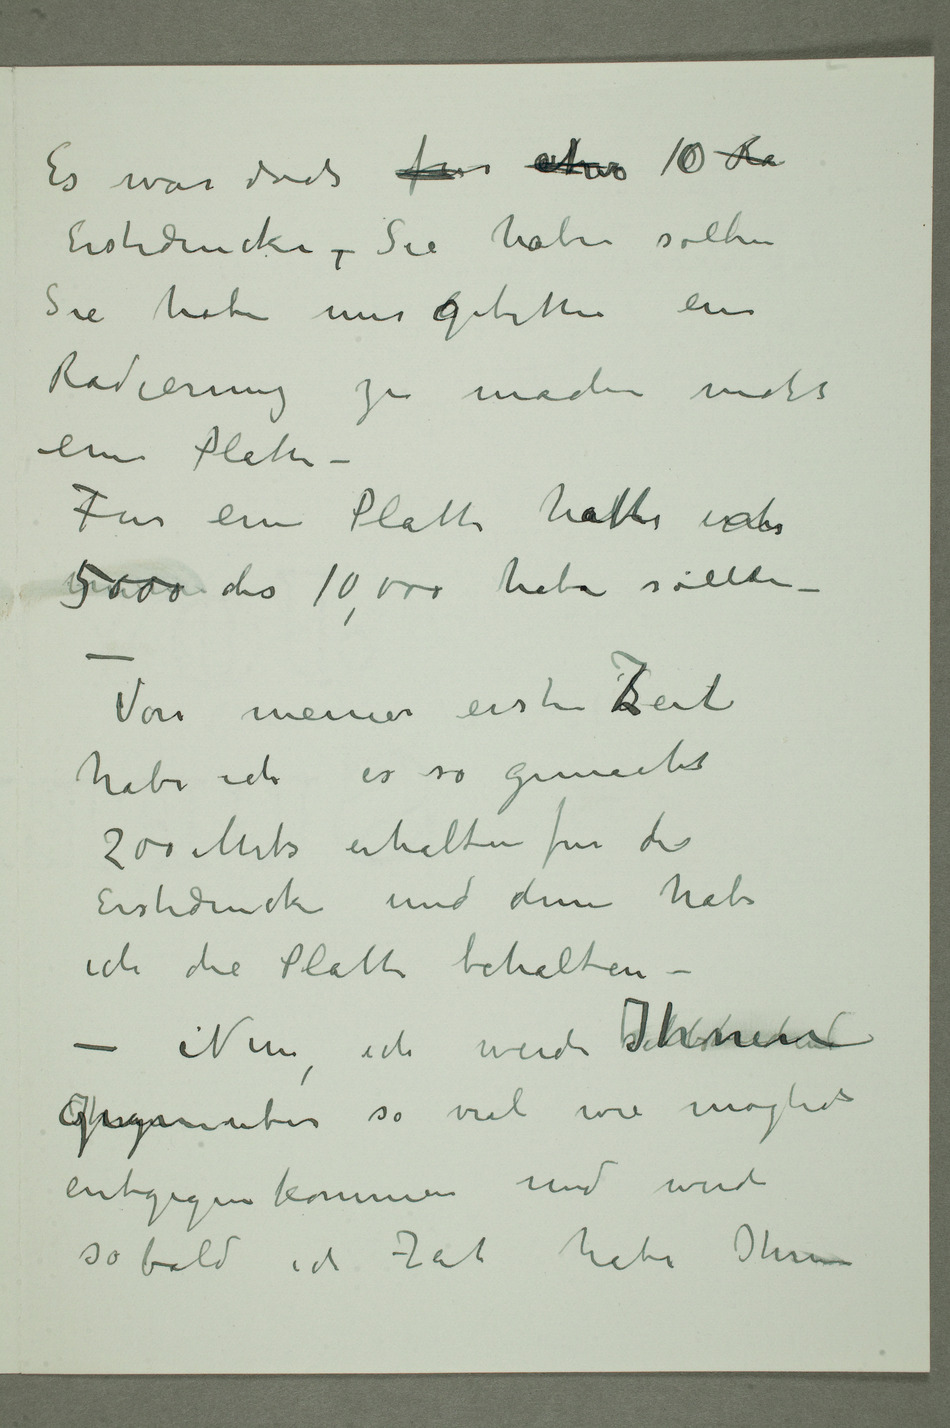 Es war doch für 10 Ra
Erstedrucke, – Sie haben sollten
Sie haben mir gebetten eine
Radierung zu machen nicht
eine Platte –
Für eine Platte hatte ich
5000 bis 10,000 haben sollen –
—
Von meiner ersten Zeit
habe ich es so gemacht
200 Mk erhalten für die
Erstedrucke und denn habe
ich die Platte behalten –
— Nun, ich werde Ihnen
gegenuber so viel wie moglich
entgegenkommen und werde
sobald ich Zeit habe Ihnen